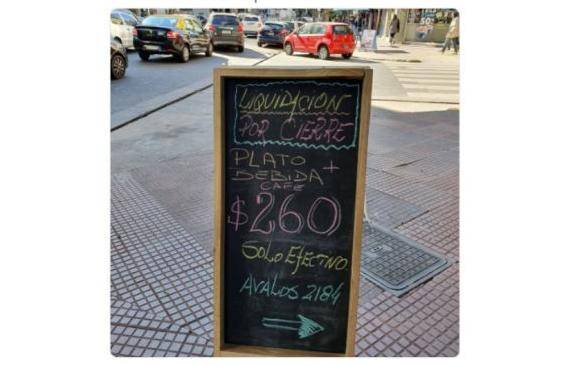 LIQUIDACION
POR CIERRE
PLATO +
BEBIDA
CAFE
$260
SOLO EFECTIVO
AVALOS 2184